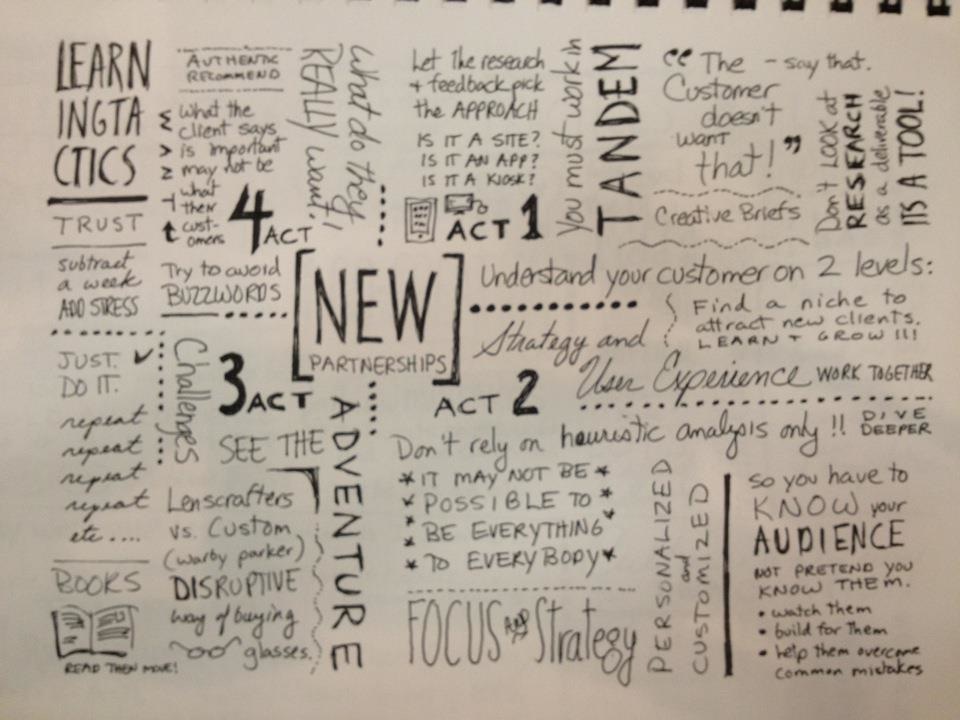 LEARN
INGTA
CTICS
TRUST
subtract
a week
ADD STRESS
JUST.
DO IT.
repeat
repeat
repeat
repeat
etc....
BOOKS
READ THEN MOVE!
AUTHENTIC
RECOMMEND
what the
client says
is important
may not be
what
their
cust-
omers
What do they
REALLY want!
4
ACT
Try to avoid
BUZZWORDS
[NEW
PARTNERSHIPS]
Let the research
+ feedback pick
the APPROACH
IS IT A SITE?
IS IT AN APP?
IS IT A KIOSK?
ACT 1
You must work in
TANDEM
"The - say that.
Customer
doesn't
want
that!"
Creative Briefs
Don't LOOK at
RESEARCH
as a deliverable
ITS A TOOL!
Understand your customer on 2 levels:
Strategy and
User Experience WORK TOGETHER
Find a niche to
attract new clients.
LEARN + GROW!!!
ACT 2
Don't rely on heuristic analysis only!! DIVE
DEEPER
*IT MAY NOT BE*
*POSSIBLE TO*
*BE EVERYTHING*
*TO EVERYBODY*
FOCUS AND Strategy
PERSONALIZED
and
CUSTOMIZED
so you have to
KNOW your
AUDIENCE
NOT PRETEND YOU
KNOW THEM.
• watch them
• build for them
• help them overcome
common mistakes
Challenges
3 ACT
SEE THE
ADVENTURE
Lenscrafters
vs. Custom
(warby parker)
DISRUPTIVE
way of buying
glasses.